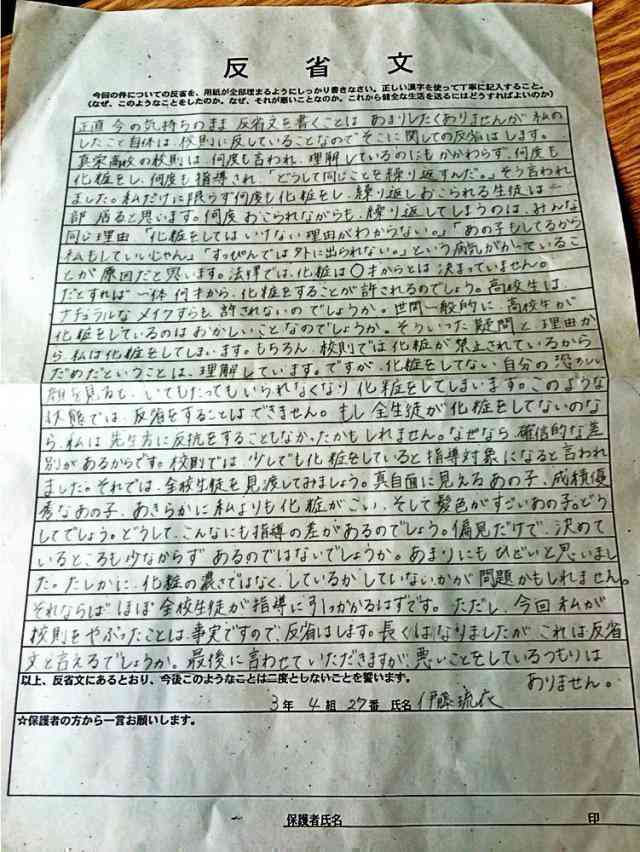 反省文
今回の件についての反省を、用紙が全部埋まるようにしっかり書きなさい。正しい漢字を使って丁寧に記入すること。
(なぜ、このようなことをしたのか。なぜ、それが悪いことなのか。これから健全な生活を送るにはどうすればよいのか)
正直今の気持ちのまま反省文を書くことはあまりしたくありませんが私の
したこと自体は校則に反していることなのでそこに関しての反省はします。
真栄高校の校則は何度も言われ、理解しているのにもかかわらず、何度も
化粧をし、何度も指導され「どうして同じことを繰り返すんだ。」そう言われ
ました。私だけに限らず何度も化粧をし、繰り返しおこられる生徒は一
部居ると思います。何度おこられながらも、繰り返してしまうのは、みんな
同じ理由「化粧をしてはいけない理由がわからない。」「あの子もしてるから
私もしていいじゃん」「すっぴんでは外に出られない。」という病気がかっているこ
とが原因だと思います。法律では、化粧は〇才からとは決まっていません。
だとすれば一体何才から、化粧をすることが許されるのでしょう。高校生は、
ナチュラルなメイクすらも許されないのでしょうか。世間一般的に、高校生が
化粧をしているのはおかしいことなのでしょうか。そういった疑問と理由か
ら、私は化粧をしてしまいます。もちろん、校則では化粧が禁止されているから
だめだということは、理解しています。ですが、化粧をしてない自分の恐ろしい
顔を見ると、いてもたってもいられなくなり化粧をしてしまいます。このような
状態では、反省をすることはできません。もし全生徒が化粧をしてないのな
ら、私は先生方に反抗をすることもなかったかもしれません。なぜなら、確信的な差
別があるからです。校則では少しでも化粧をしていると指導対象になると言われ
ました。それでは、全校生徒を見渡してみましょう。真面目に見えるあの子、成績優
秀なあの子、あきらかに私よりも化粧がこい、そして髪色がすごいあの子。どう
してでしょう。どうして、こんなにも指導の差があるのでしょう。偏見だけで、決めて
いるところも少なからずあるのではないでしょうか。あまりにもひどいと思いまし
た。たしかに、化粧の濃さではなく、しているかしていないかが問題かもしれません。
それならばほぼ全校生徒が指導に引っかかるはずです。ただし、今回私が
校則をやぶったことは事実ですので、反省はします。長くはなりましたがこれは反省
文と言えるでしょうか。最後に言わせていただきますが、悪いことをしているつもりは
ありません。
以上、反省文にあるとおり、今後このようなことは二度としないことを誓います。
3年 4組 27番 氏名 伊藤琉衣
☆保護者の方から一言お願いします。
保護者氏名 印